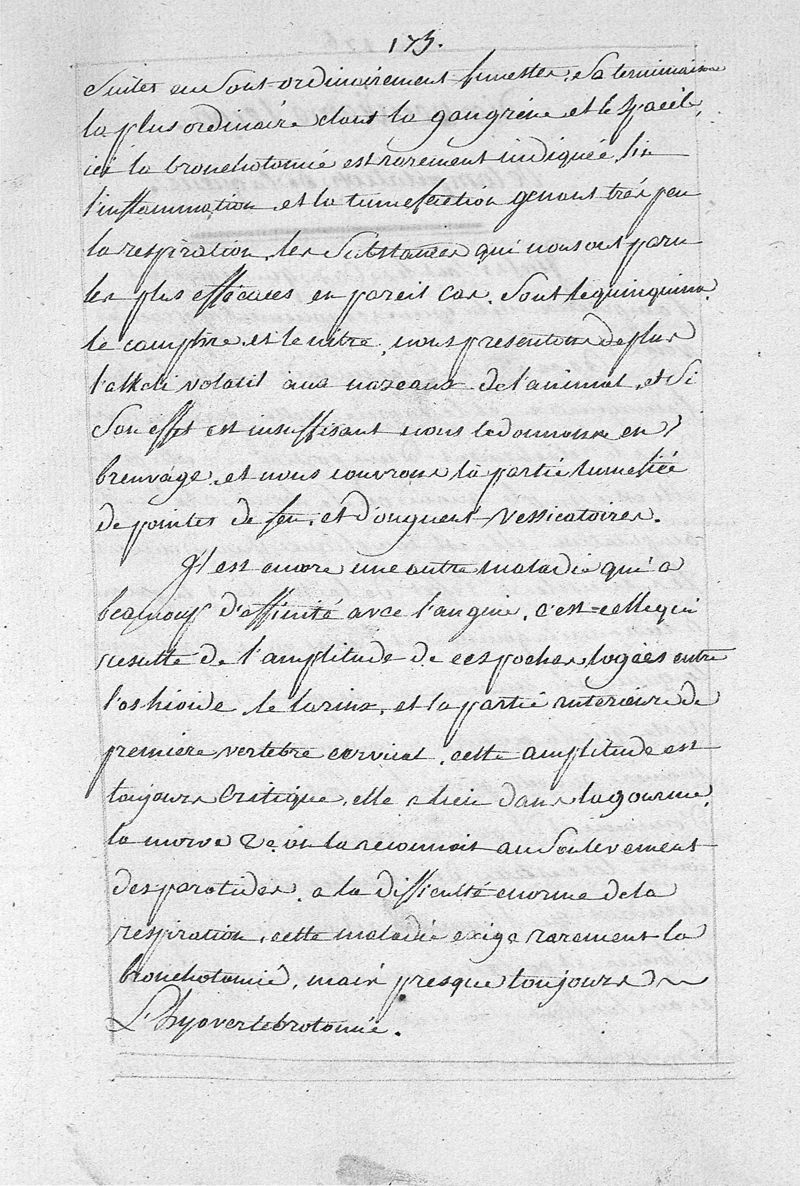 175.
Suites en Sont ordinairement funestes, Sa terminaison
la plus ordinaire etant la gangrêne et le Spacel,
ici la bronchotomie est rarement indiquée, lin
l'inflammation et la tumefaction genant très peu
la respiration, les Substances qui nous ont paru
les plus efficaces en pareil cas. Sont le quinquina.
le camphre, et le nitre, nous presentons de plus
l'alkali volatil aux nazeaux de l'animal, et Si
Son effet est insuffisant nous le donnons en
breuvage, et nous couvrons la partie tumefiée
de pointes de feu, et d'onguent vessicatoires.
Il est encore une autre maladie qui a
beaucoup d'affinité avec l'angine, c'est celle qui
resulte de l'amplitude de ces poches logées entre
l'os hioide le larinx, et la partie interieure de
premiere vertebre cervical, cette amplitude est
toujours Critique, elle a lieu dans la gourme,
la morve &c. on la reconnoit au Soulevement
des parotides, a la difficulté enorme de la
respiration, cette maladie exige rarement la
bronchotomie, mais presque toujours
L'hyovertebrotomie.